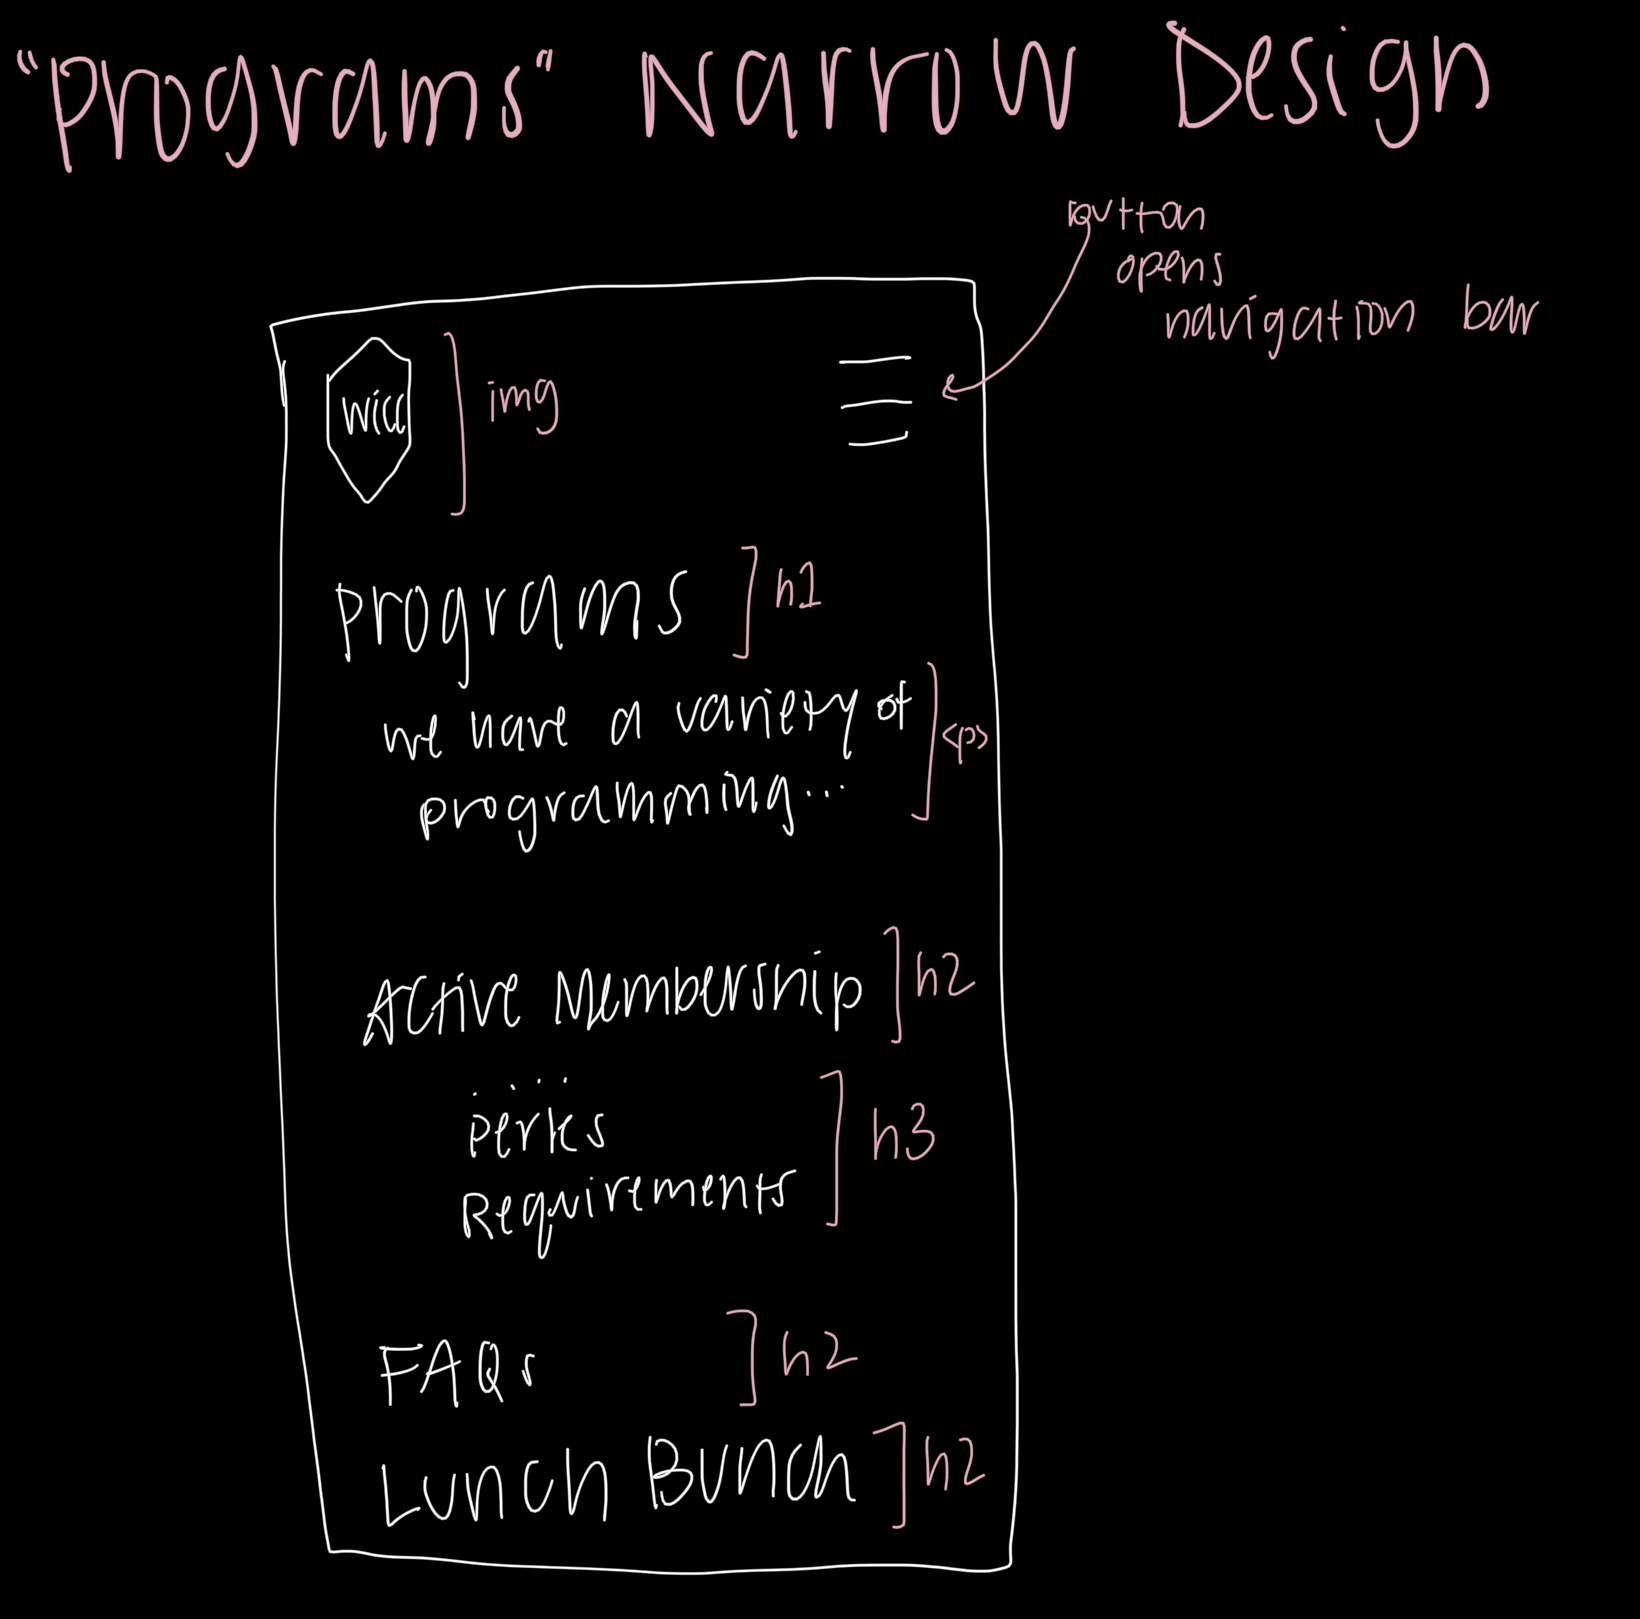 "Programs" Narrow Design
button
opens
navigation bar
wicc
img
Programs
h1
we have a variety of
programming...
<p>
Active Membership
h2
....
Perks
Requirements
h3
FAQs
h2
Lunch Bunch
h2